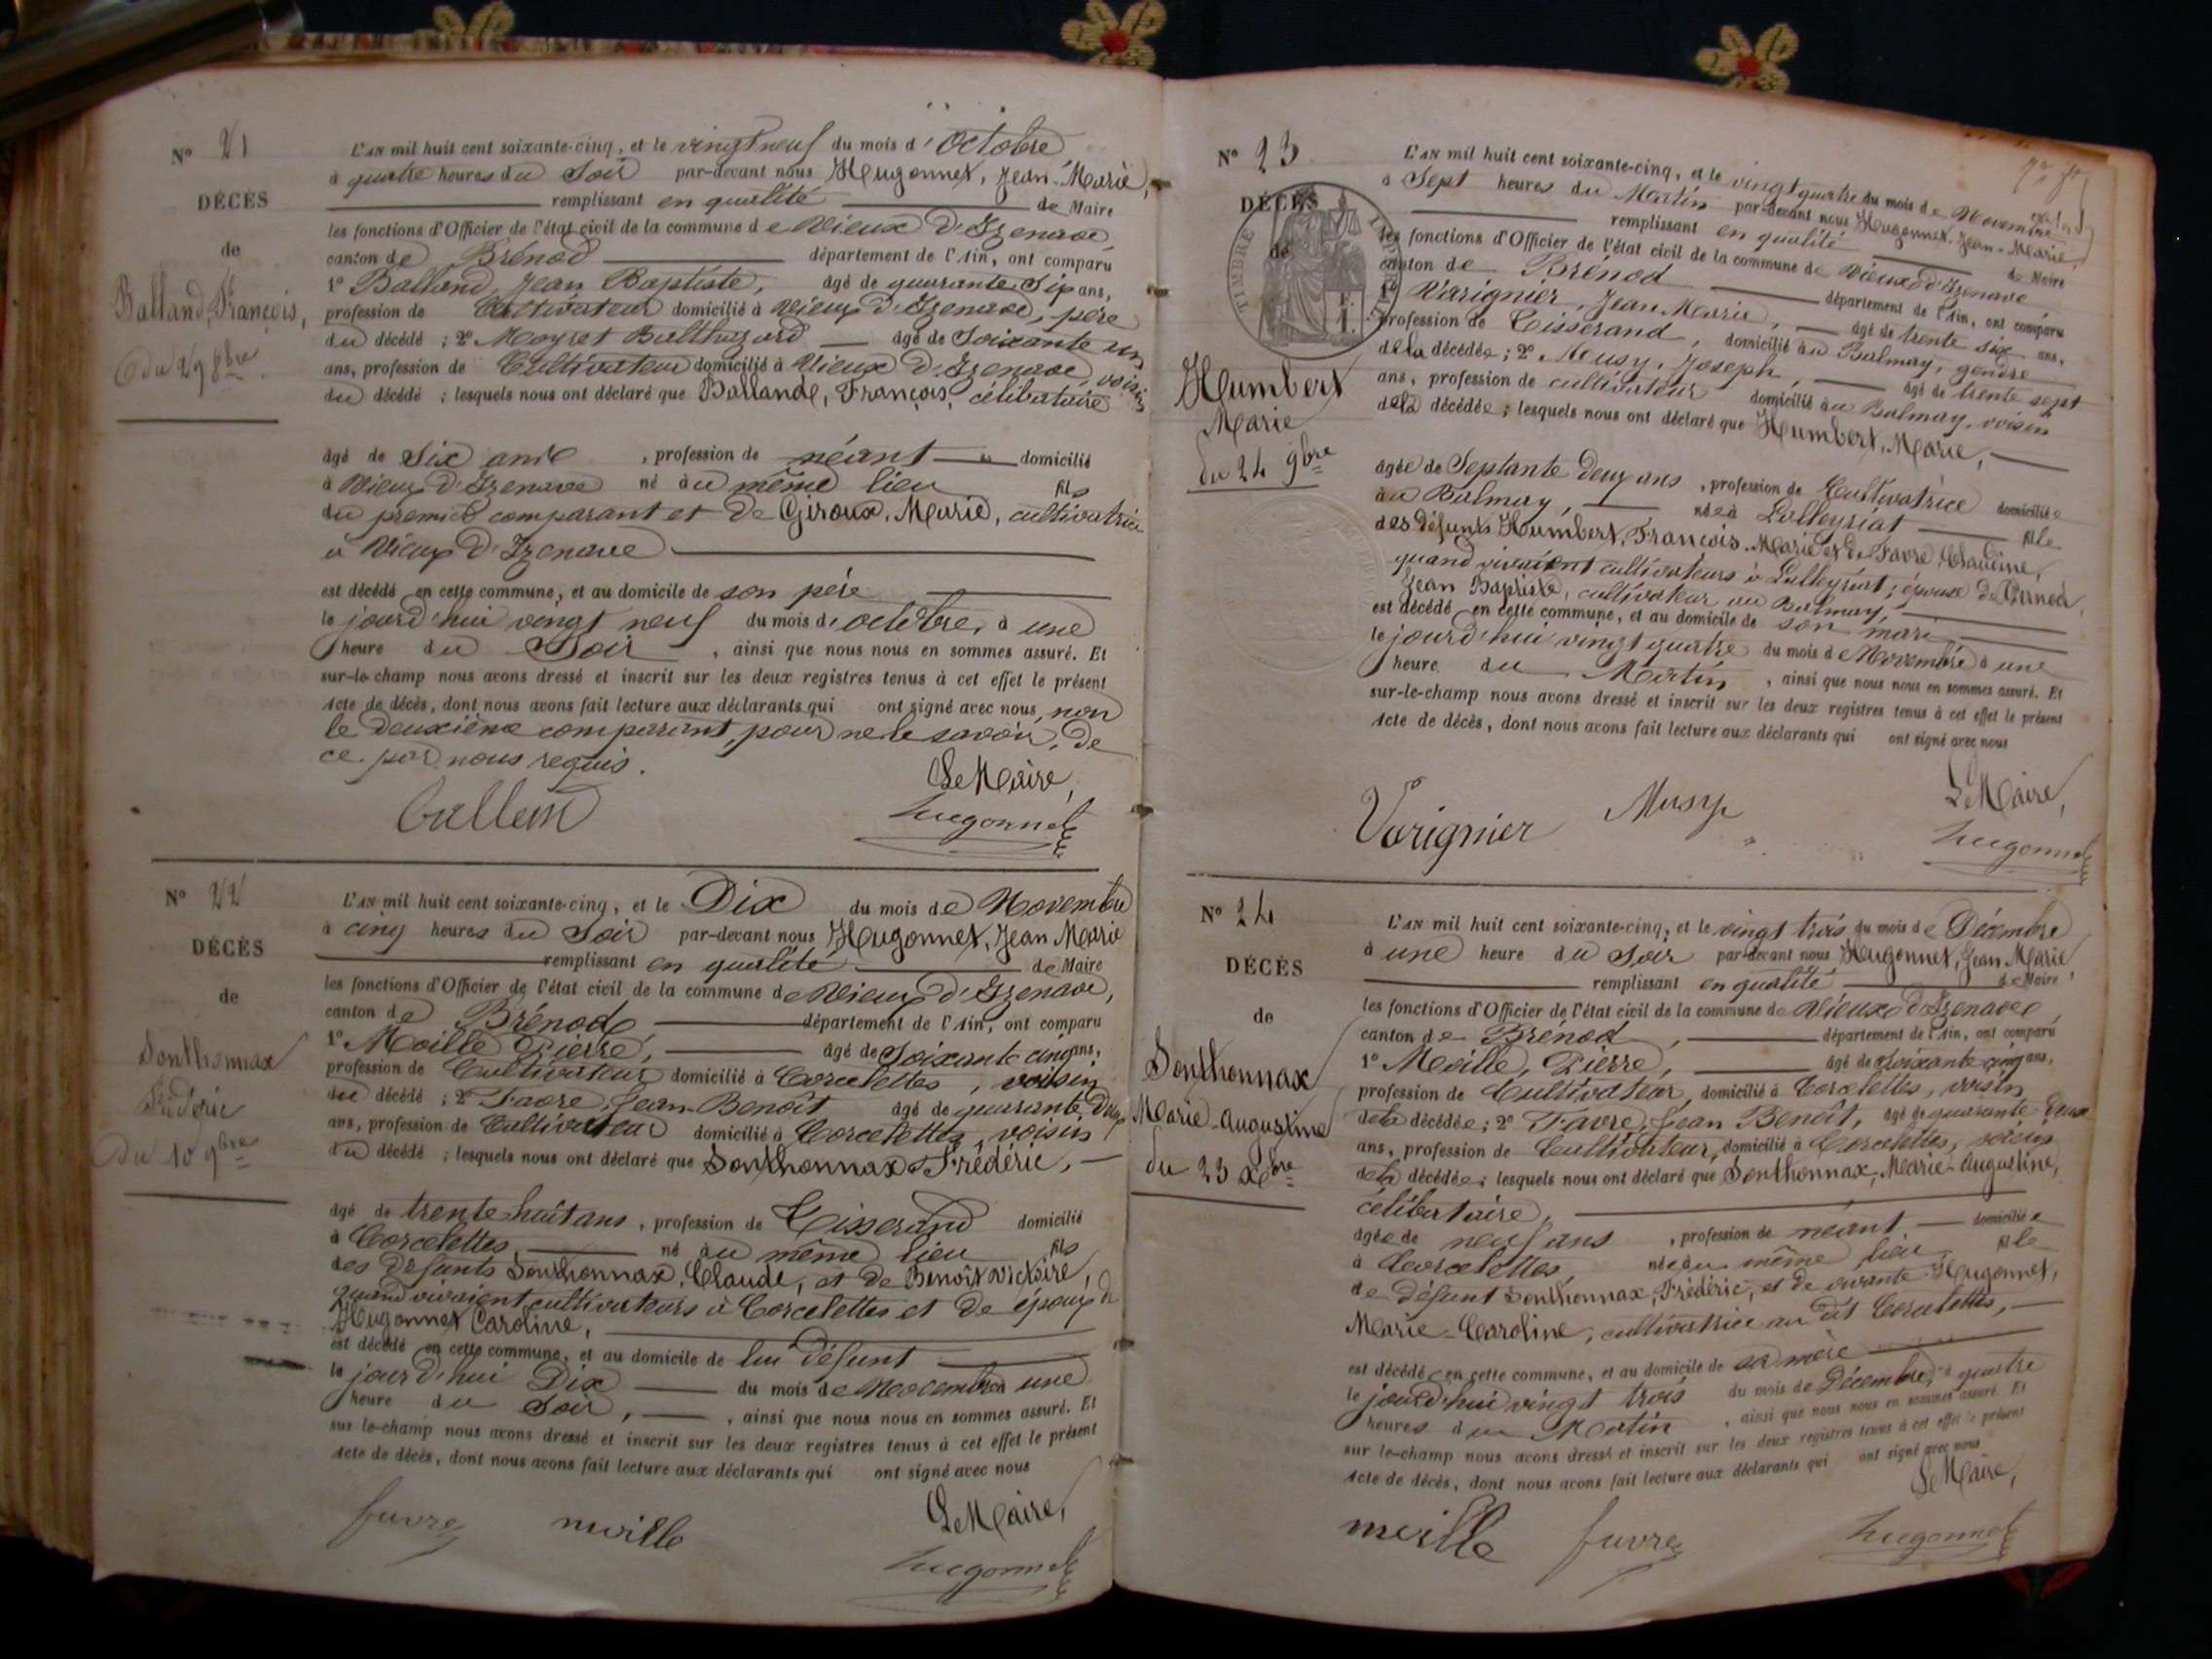 N° 21
DÉCÈS
de
Balland, François,
du 29 8bre
L'AN mil huit cent soixante-cinq, et le vingt neuf du mois d'Octobre
à quatre heures du Soir par-devant nous Hugonnet, Jean-Marie,
remplissant en qualité de Maire
les fonctions d'Officier de l'état civil de la commune de Vieux d'Izenave,
canton de Brénod département de l'Ain, ont comparu
1° Balland, Jean Baptiste, âgé de quarante Six ans,
profession de Cultivateur domicilié à Vieux d'Izenave, père
du décédé ; 2° Moyret Balthazard âgé de Soixante un
ans, profession de Cultivateur domicilié à Vieux d'Izenave, voisin
du décédé ; lesquels nous ont déclaré que Ballande, François, célibataire
âgé de Six ans , profession de néant domicilié
à Vieux d'Izenave né au même lieu fils
du premier comparant et de Giroux, Marie, cultivatrice
à Vieux d'Izenave
est décédé en cette commune, et au domicile de son père
le jourd'hui vingt neuf du mois d'octobre, à une
heure du Soir , ainsi que nous nous en sommes assuré. Et
sur-le-champ nous avons dressé et inscrit sur les deux registres tenus à cet effet le présent
Acte de décès, dont nous avons fait lecture aux déclarants qui ont signé avec nous, non
le deuxième comparant, pour ne le savoir, de
ce par nous requis.
Le Maire,
Balland
hugonnet
N° 22
DÉCÈS
de
Sonthonnax
Frédéric
du 10 9bre
L'AN mil huit cent soixante-cinq, et le Dix du mois de Novembre
à cinq heures du Soir par-devant nous Hugonnet, Jean Marie
remplissant en qualité de Maire
les fonctions d'Officier de l'état civil de la commune de Vieux d'Izenave,
canton de Brénod département de l'Ain, ont comparu
1° Moille Pierre, âgé de Soixante cinq ans,
profession de Cultivateur domicilié à Corcelettes, voisin
du décédé ; 2° Favre, Jean-Benoît âgé de quarante Deux
ans, profession de Cultivateur domicilié à Corcelettes, voisin
du décédé ; lesquels nous ont déclaré que Sonthonnax Frédéric,
âgé de trente huit ans , profession de Tisserand domicilié
à Corcelettes, né au même lieu fils
des défunts Sonthonnax, Claude, et de Benoît Victoire,
quand vivaient cultivateurs à Corcelettes et de époux de
Hugonnet Caroline,
est décédé en cette commune, et au domicile de lui défunt
le jourd'hui Dix du mois de Novembre à une
heure du Soir, , ainsi que nous nous en sommes assuré. Et
sur le-champ nous avons dressé et inscrit sur les deux registres tenus à cet effet le présent
Acte de décès, dont nous avons fait lecture aux déclarants qui ont signé avec nous
Le Maire,
favre meille
hugonnet
N° 23
DÉCÈS
de
Humbert
Marie
du 24 9bre
TIMBRE
L'AN mil huit cent soixante-cinq, et le vingt quatre du mois de Novembre
à Sept heures du Matin par-devant nous Hugonnet, Jean-Marie,
remplissant en qualité de Maire
les fonctions d'Officier de l'état civil de la commune de Vieux d'Izenave
canton de Brénod département de l'Ain, ont comparu
1° Varignier, Jean Marie, âgé de trente six ans,
profession de Tisserand, domicilié au Balmay, gendre
de la décédée ; 2° Musy, Joseph, âgé de trente sept
ans, profession de cultivateur domicilié au Balmay, voisin
de la décédée ; lesquels nous ont déclaré que Humbert, Marie,
âgée de Septante deux ans , profession de Cultivatrice domiciliée
au Balmay, née à Lalleyriat fille
des défunts Humbert, François-Marie et de Favre Claudine,
quand vivaient cultivateurs à Lalleyriat ; épouse de
Jean Baptiste, cultivateur au Balmay,
est décédé en cette commune, et au domicile de son mari
le jourd'hui vingt quatre du mois de Novembre à une
heure du Matin , ainsi que nous nous en sommes assuré. Et
sur-le-champ nous avons dressé et inscrit sur les deux registres tenus à cet effet le présent
Acte de décès, dont nous avons fait lecture aux déclarants qui ont signé avec nous
Le Maire,
Varignier Musy
hugonnet
N° 24
DÉCÈS
de
Sonthonnax
Marie-Augustine
du 23 Xbre
L'AN mil huit cent soixante-cinq, et le vingt trois du mois de Décembre
à une heure du Soir par-devant nous Hugonnet, Jean Marie,
remplissant en qualité de Maire
les fonctions d'Officier de l'état civil de la commune de Vieux d'Izenave
canton de Brénod, département de l'Ain, ont comparu
1° Meille, Pierre, âgé de Soixante cinq ans,
profession de Cultivateur, domicilié à Corcelettes, voisin
de la décédée ; 2° Favre, Jean Benoît, âgé de quarante-Deux
ans, profession de Cultivateur, domicilié à Corcelettes, voisin
de la décédée ; lesquels nous ont déclaré que Sonthonnax, Marie-Augustine,
célibataire,
âgée de neuf ans , profession de néant domiciliée
à Corcelettes, née au même lieu fille
de défunt Sonthonnax, Frédéric, et de vivante Hugonnet,
Marie-Caroline, cultivatrice au dit Corcelettes,
est décédé en cette commune, et au domicile de sa mère
le jourd'hui vingt trois du mois de Décembre, à quatre
heures du Matin , ainsi que nous nous en sommes assuré. Et
sur le-champ nous avons dressé et inscrit sur les deux registres tenus à cet effet le présent
Acte de décès, dont nous avons fait lecture aux déclarants qui ont signé avec nous
Le Maire,
meille favre
hugonnet